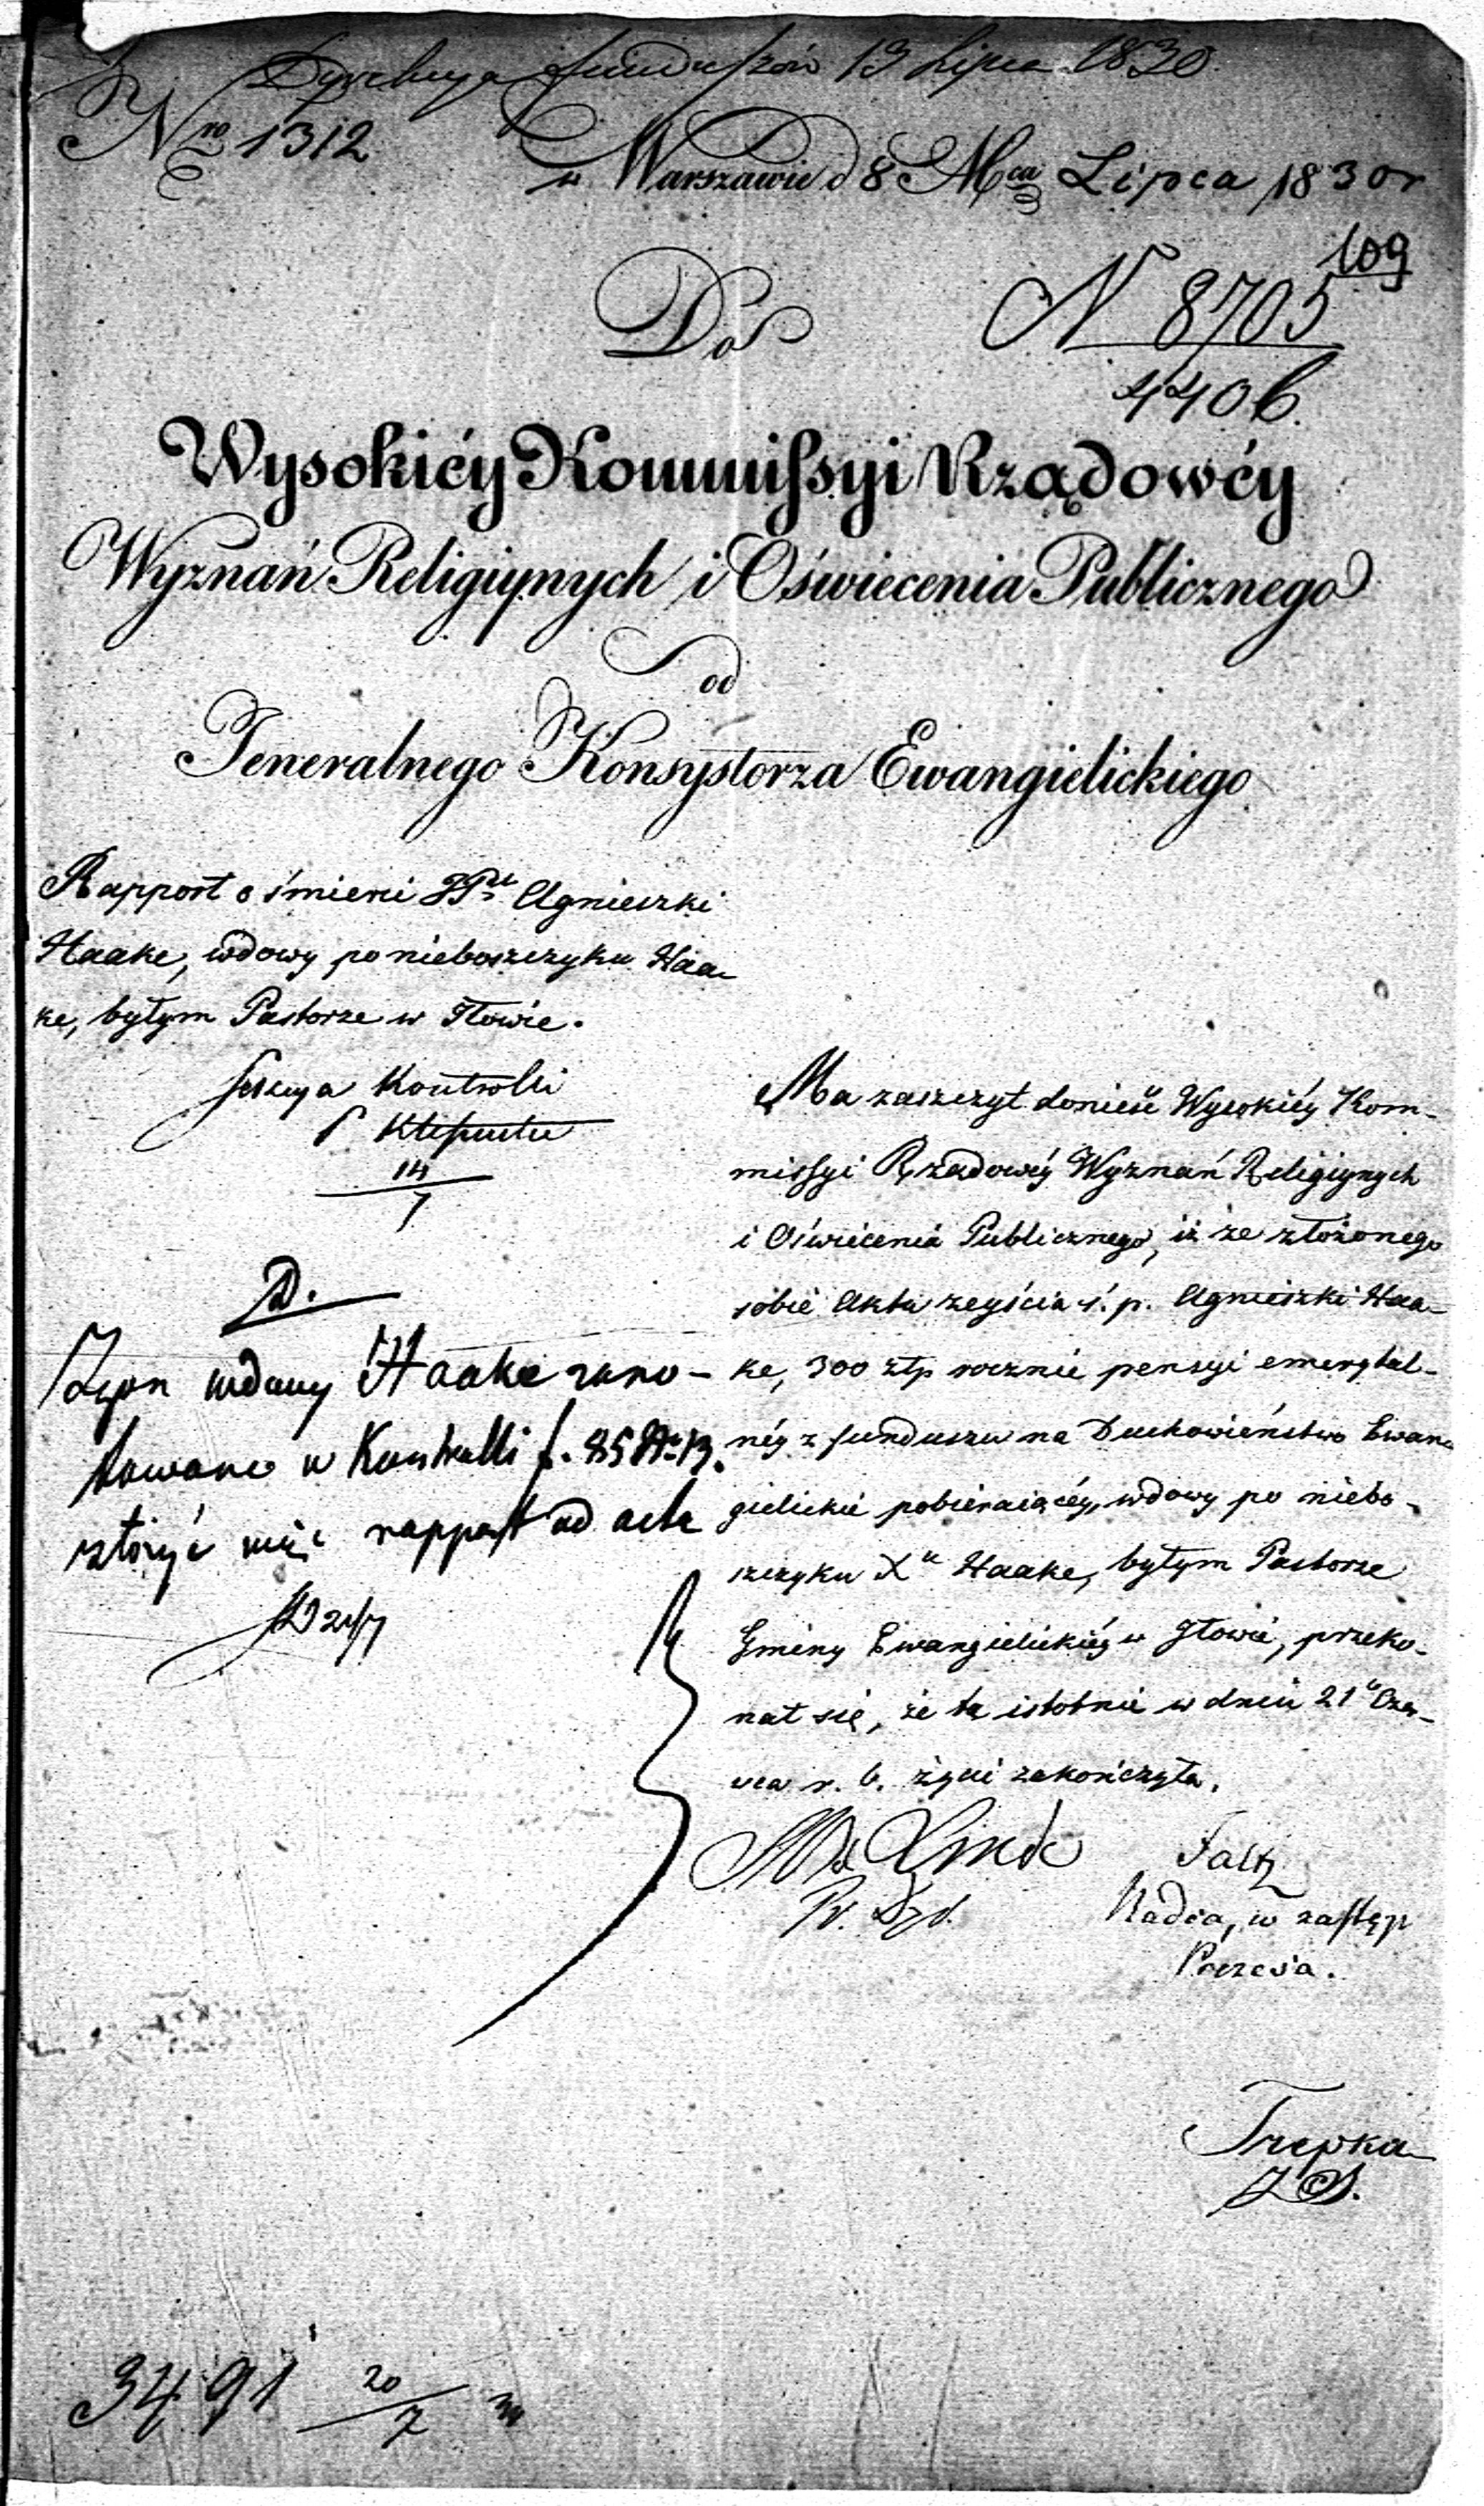 Dyrekcya funduszów 13 Lipca 1830.
Nro 1312
w Warszawie d 8 Mca Lipca 1830 r
109
Do
N 8705
4406.
Wysokiéy Kommissyi Rządowéy
Wyznań Religiynych i Oświecenia Publicznego
od
Jeneralnego Konsystorza Ewangielickiego
Rapport o śmierci Agnieszki
Haake, wdowy po nieboszczyku Haa-
ke, byłym Pastorze w Iłowie.
Sekcya Kontrolli
P
14
7
D.
Zgon wdowy Haake zano-
towano w Kontrolli f. 85 No 13.
złożyć więc rapport ad acta
21/7
Ma zaszczyt donieść Wysokiéy Kom-
missyi Rządowéy Wyznań Religiynych
i Oświecenia Publicznego, iż ze złożonego
sobie Aktu zeyścia ś. p. Agnieszki Haa-
ke, 300 złp rocznie pensyi emerytal-
néy z funduszu na Duchowieństwo Ewan-
gielickie pobieraiącéy, wdowy po niebo-
szczyku Xu Haake, byłym Pastorze
Gminy Ewangielickiéy w Iłowie, przeko-
nał się, że ta istotnie w dniu 21 Czer-
wca r. b. życie zakończyła.
Radca, w zastęp
Prezesa.
Trepka
3491 20
7